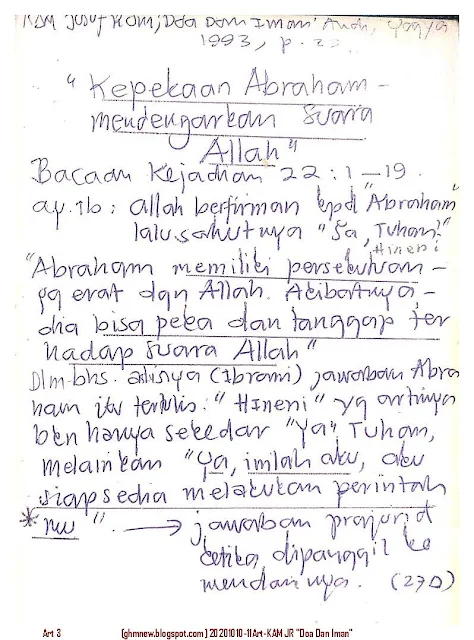 KAM Jusuf Roni, "Doa Dan Iman" Andi, Yogya
1993, p. 2
"Kepekaan Abraham -
mendengarkan suara
Allah"
Bacaan Kejadian 22:1-19.
ay. 1b: Allah berfirman kpd "Abraham"
lalu sahutnya "Ya, Tuhan."
Hineni
"Abraham memiliki persekutuan -
yg erat dgn Allah. Akibatnya, -
dia bisa peka dan tanggap ter
hadap suara Allah"
Dlm bhs. aslinya (Ibrani) jawaban Abra
ham itu tertulis: "Hineni" yg artinya
bkn hanya sekedar "Ya" Tuhan,
melainkan "Ya, inilah aku, aku
siap sedia melakukan perintah
* mu". → jawaban prajurit
ketika dipanggil ke
mendannya. (27D)
Art 3 [ghmnew.blogspot.com] 20201010-11Art-KAM JR "Doa Dan Iman"